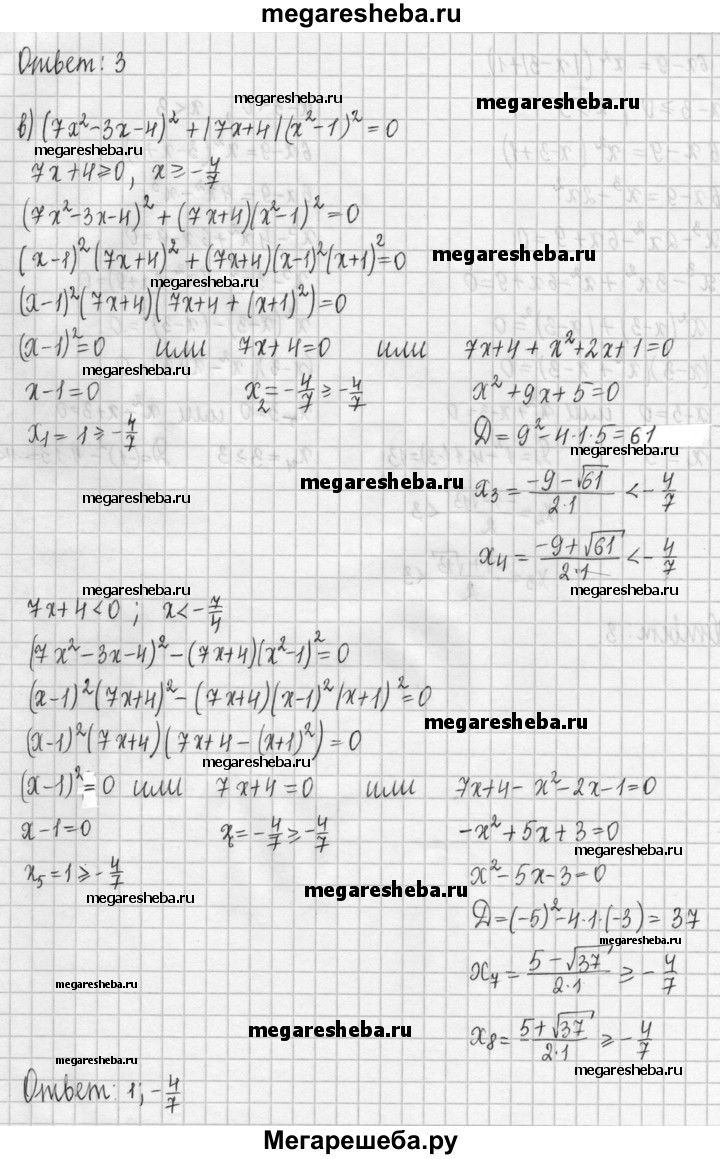 megaresheba.ru
Ответ: 3
megaresheba.ru
megaresheba.ru
в) (7x²-3x-4)² + |7x+4|(x²-1)² = 0
megaresheba.ru
7x+4≥0, x≥-4/7
(7x²-3x-4)² + (7x+4)(x²-1)² = 0
megaresheba.ru
(x-1)²(7x+4)² + (7x+4)(x-1)²(x+1)² = 0
megaresheba.ru
(x-1)²(7x+4)(7x+4 + (x+1)²) = 0
(x-1)² = 0 или 7x+4=0 или 7x+4 + x²+2x+1=0
megaresheba.ru megaresheba.ru
x-1=0 x₂=-4/7 ≥ -4/7 x²+9x+5=0
x₁ = 1 ≥ -4/7 D = 9²-4·1·5=61
megaresheba.ru
megaresheba.ru megaresheba.ru x₃ = (-9-√61)/(2·1) < -4/7
megaresheba.ru
x₄ = (-9+√61)/(2·1) < -4/7
megaresheba.ru megaresheba.ru
7x+4<0 ; x<-7/4
(7x²-3x-4)² - (7x+4)(x²-1)² = 0
(x-1)²(7x+4)² - (7x+4)(x-1)²(x+1)² = 0
megaresheba.ru
(x-1)²(7x+4)(7x+4 - (x+1)²) = 0
megaresheba.ru
(x-1)² = 0 или 7x+4=0 или 7x+4-x²-2x-1=0
x-1=0 x₆=-4/7 ≥ -4/7 -x²+5x+3=0
megaresheba.ru
x₅ = 1 ≥ -4/7 x²-5x-3=0
megaresheba.ru megaresheba.ru
D=(-5)²-4·1·(-3) = 37
megaresheba.ru
x₇ = (5-√37)/(2·1) ≥ -4/7
megaresheba.ru megaresheba.ru
megaresheba.ru x₈ = (5+√37)/(2·1) ≥ -4/7
megaresheba.ru megaresheba.ru
Ответ: 1; -4/7
Мегарешеба.ру